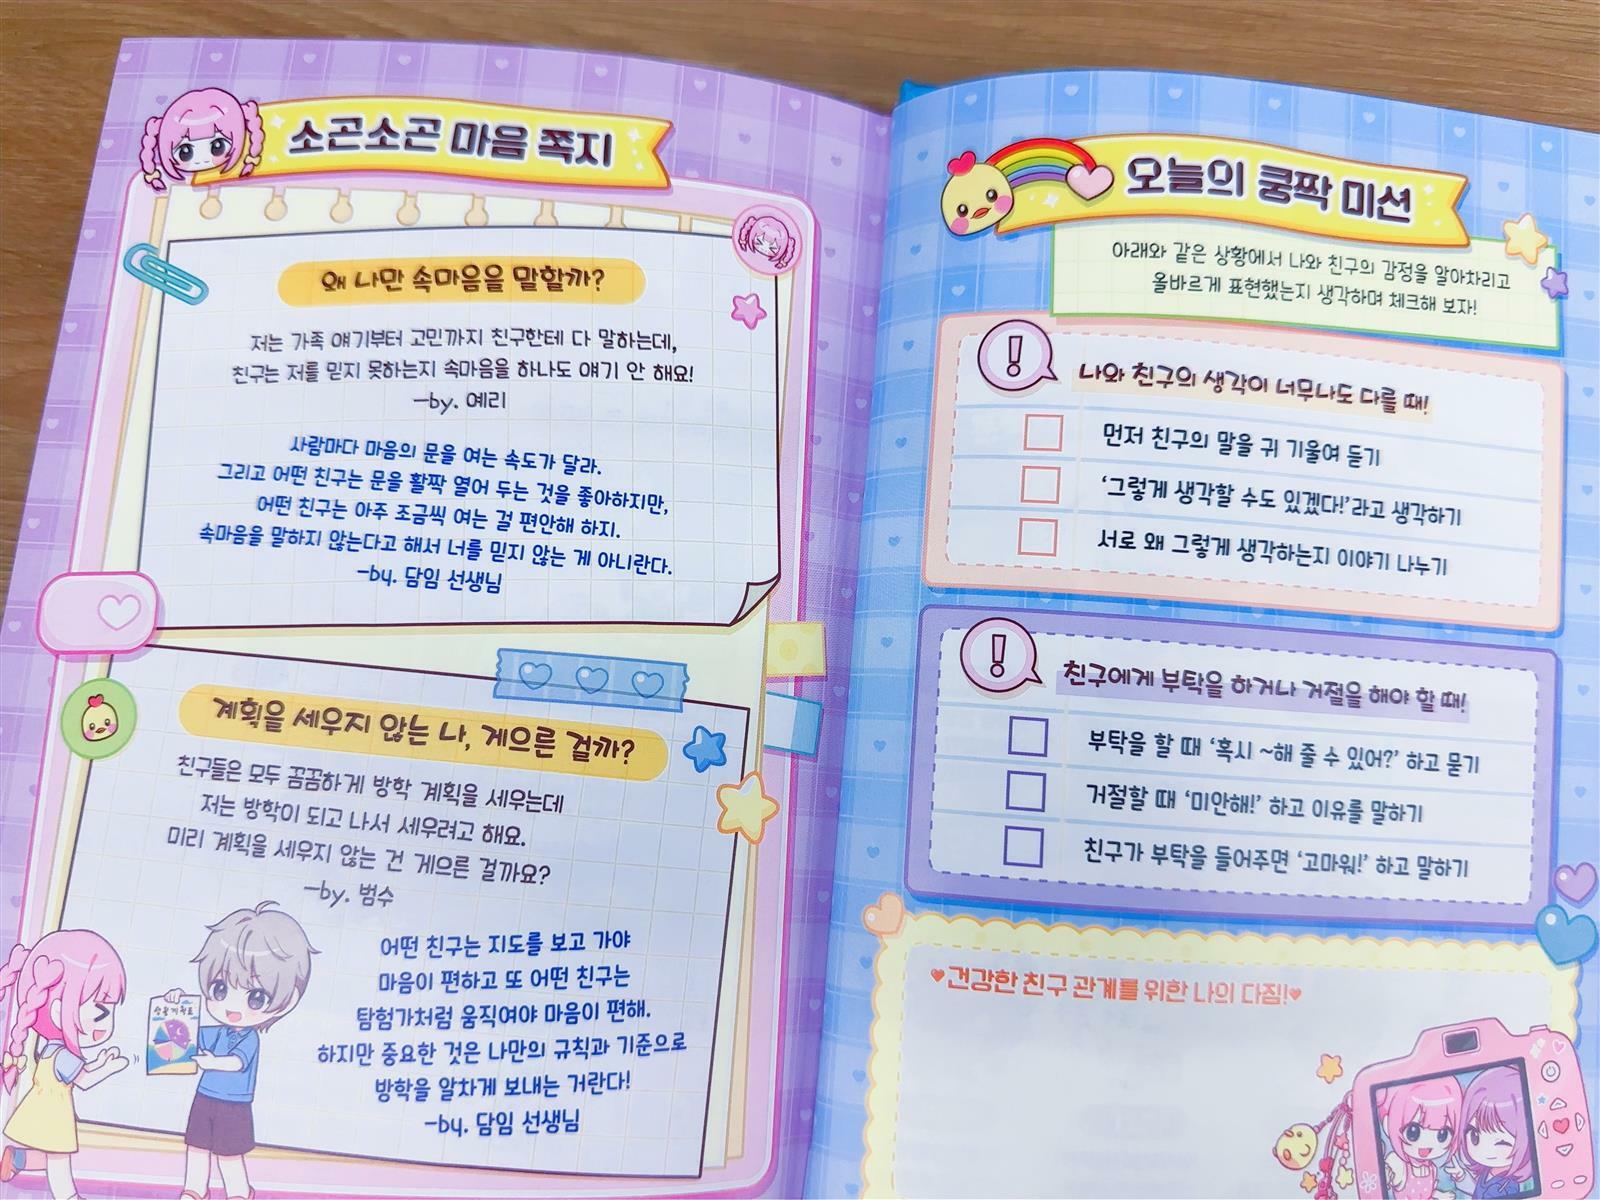 소곤소곤 마음 쪽지
왜 나만 속마음을 말할까?
저는 가족 얘기부터 고민까지 친구한테 다 말하는데,
친구는 저를 믿지 못하는지 속마음을 하나도 얘기 안 해요!
-by. 예리
사람마다 마음의 문을 여는 속도가 달라.
그리고 어떤 친구는 문을 활짝 열어 두는 것을 좋아하지만,
어떤 친구는 아주 조금씩 여는 걸 편안해 하지.
속마음을 말하지 않는다고 해서 너를 믿지 않는 게 아니란다.
-by. 담임 선생님
계획을 세우지 않는 나, 게으른 걸까?
친구들은 모두 꼼꼼하게 방학 계획을 세우는데
저는 방학이 되고 나서 세우려고 해요.
미리 계획을 세우지 않는 건 게으른 걸까요?
-by. 범수
어떤 친구는 지도를 보고 가야
마음이 편하고 또 어떤 친구는
탐험가처럼 움직여야 마음이 편해.
하지만 중요한 것은 나만의 규칙과 기준으로
방학을 알차게 보내는 거란다!
-by. 담임 선생님
오늘의 쿵짝 미션
아래와 같은 상황에서 나와 친구의 감정을 알아차리고
올바르게 표현했는지 생각하며 체크해 보자!
나와 친구의 생각이 너무나도 다를 때!
먼저 친구의 말을 귀 기울여 듣기
'그렇게 생각할 수도 있겠다!'라고 생각하기
서로 왜 그렇게 생각하는지 이야기 나누기
친구에게 부탁을 하거나 거절을 해야 할 때!
부탁을 할 때 '혹시 ~해 줄 수 있어?' 하고 묻기
거절할 때 '미안해!' 하고 이유를 말하기
친구가 부탁을 들어주면 '고마워!' 하고 말하기
♥건강한 친구 관계를 위한 나의 다짐!♥